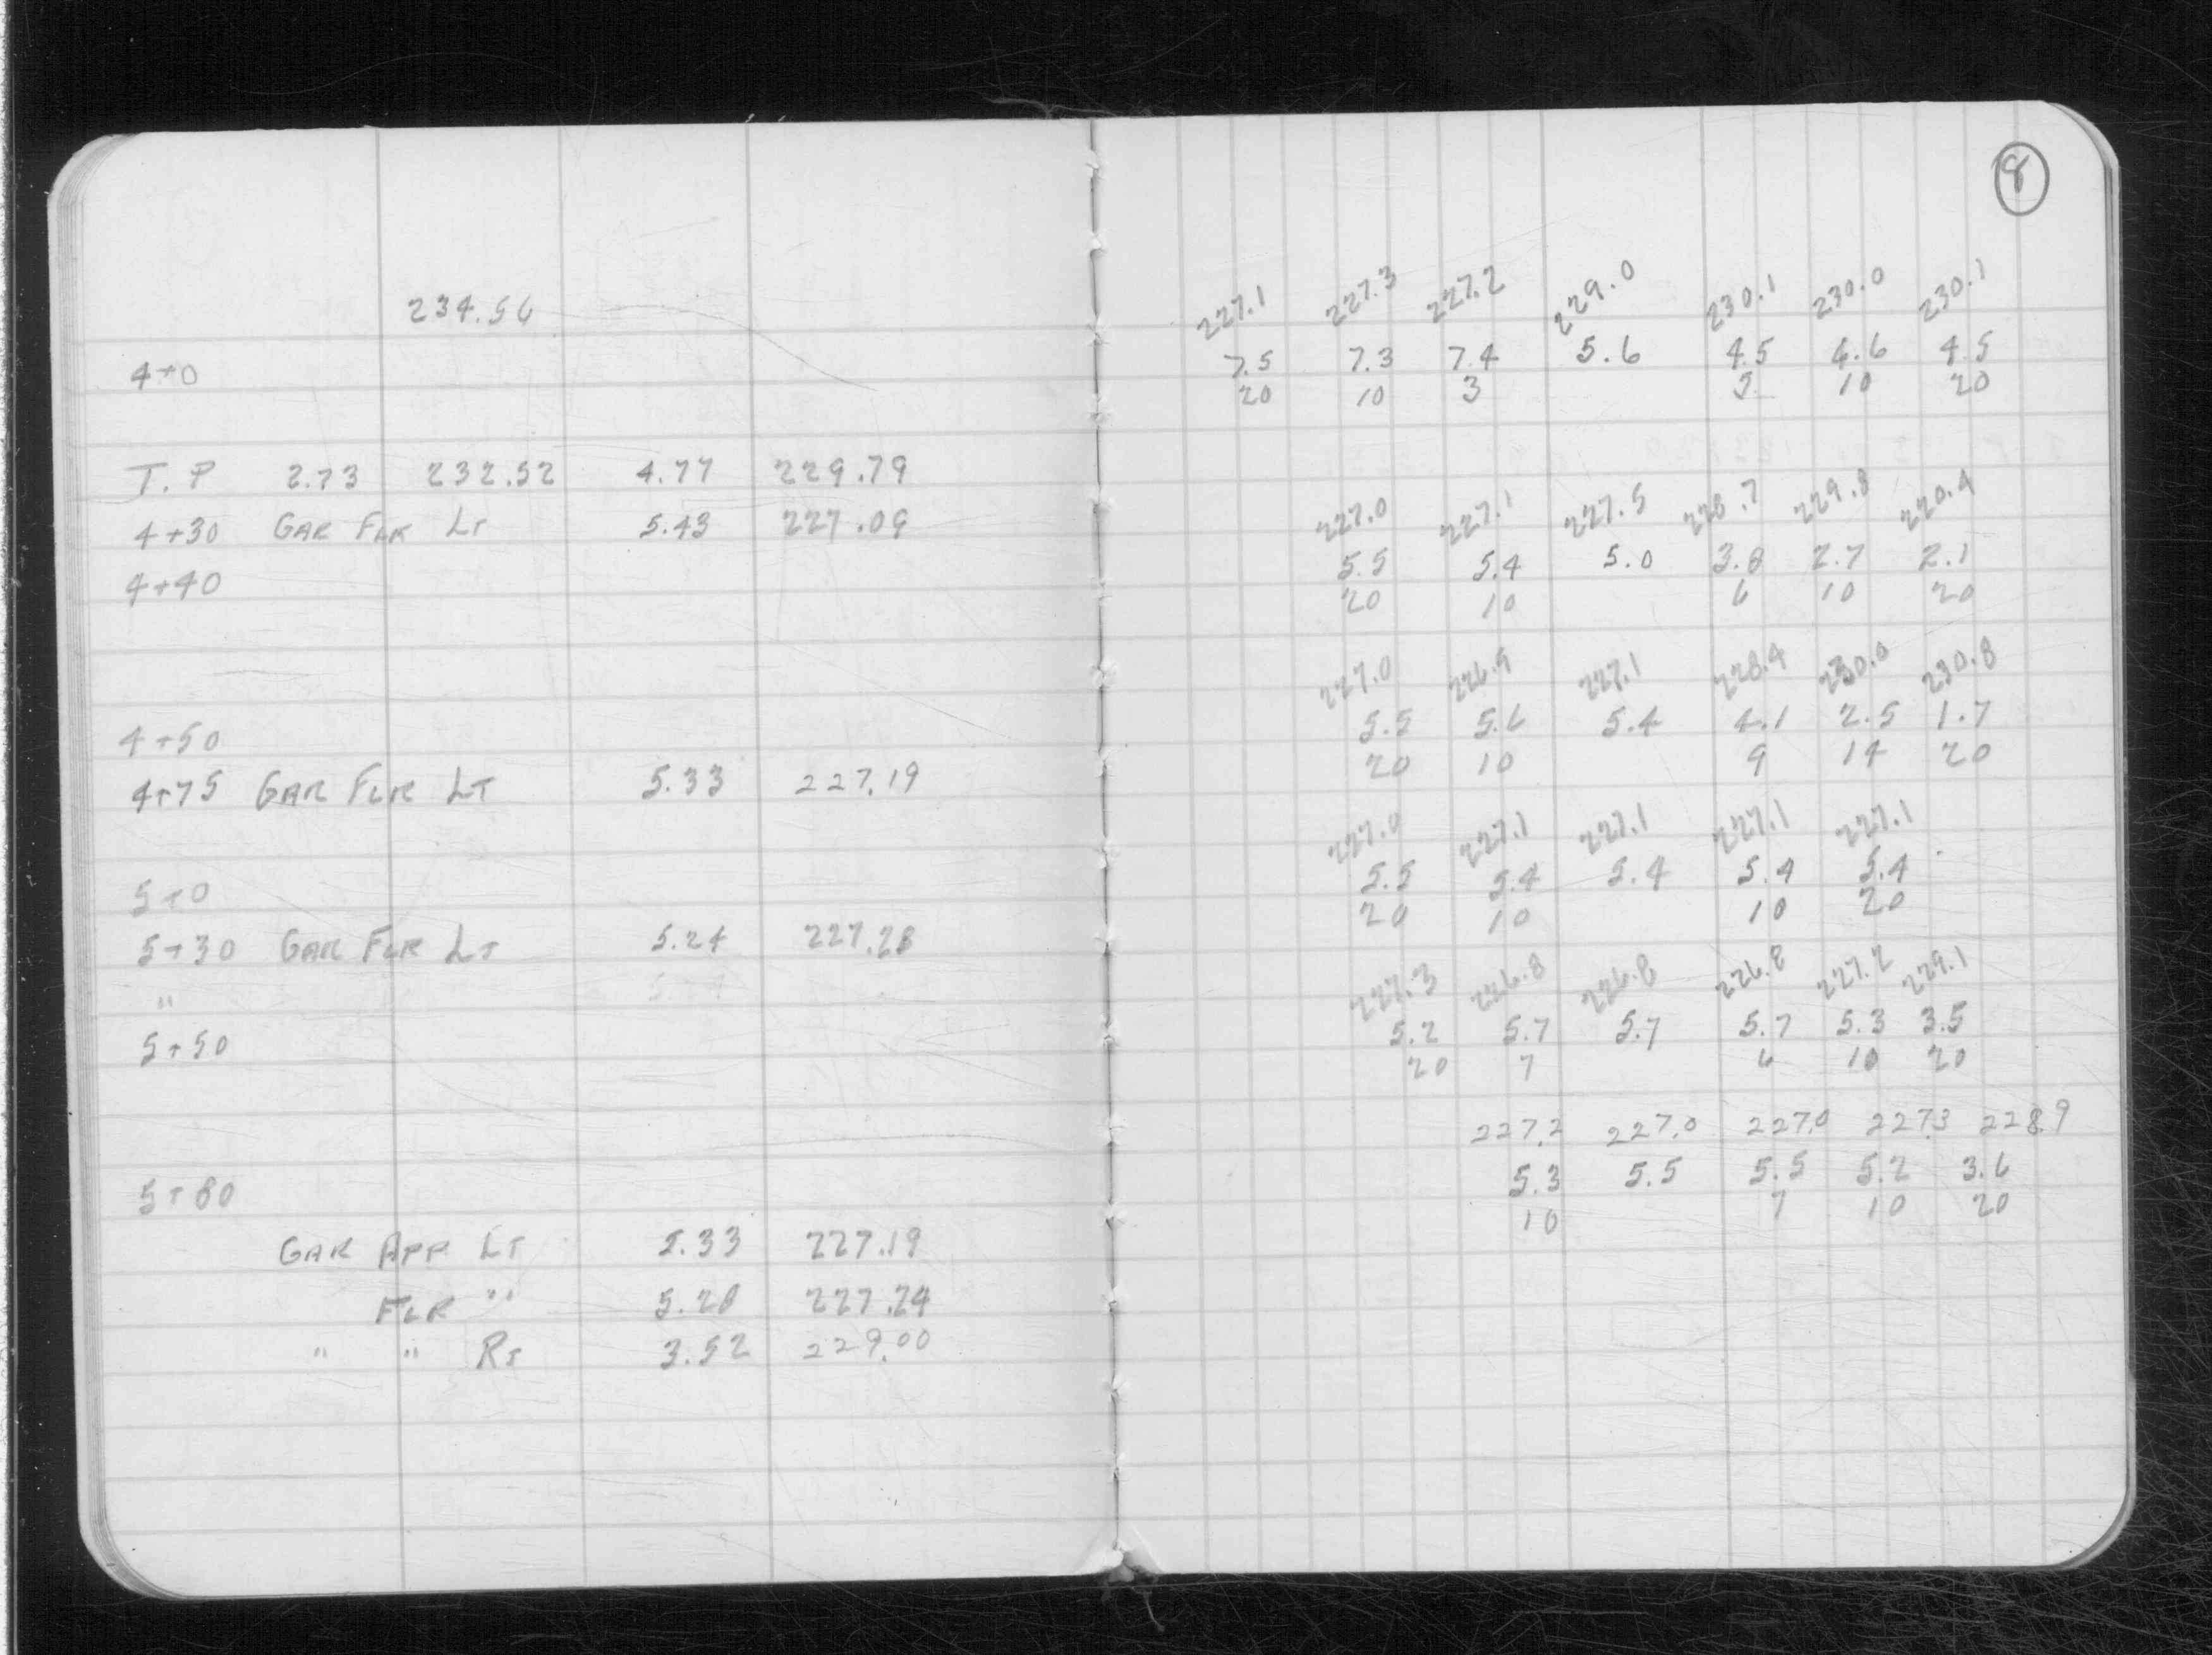 234.56
4+0
T.P 2.73 232.52 4.77 229.79
4+30 GAR FLR LT 5.43 227.09
4+40
4+50
4+75 GAR FLR LT 5.33 227.19
5+0
5+30 GAR FLR LT 5.24 227.28
"
5+50
5+80
GAR APP LT 5.33 227.19
FLR " 5.28 227.24
" " RT 3.52 229.00
8
227.1 227.3 227.2 229.0 230.1 230.0 230.1
7.5 7.3 7.4 5.6 4.5 4.6 4.5
20 10 3 5 10 20
227.0 227.1 227.5 228.7 229.8 220.4
5.5 5.4 5.0 3.8 2.7 2.1
20 10 6 10 20
227.0 226.9 227.1 228.4 230.0 230.8
5.5 5.6 5.4 4.1 2.5 1.7
20 10 9 14 20
227.0 227.1 227.1 227.1 227.1
5.5 5.4 5.4 5.4 5.4
20 10 10 20
227.3 226.8 226.8 226.8 227.2 229.1
5.2 5.7 5.7 5.7 5.3 3.5
20 7 6 10 20
227.2 227.0 227.0 227.3 228.9
5.3 5.5 5.5 5.2 3.6
10 7 10 20